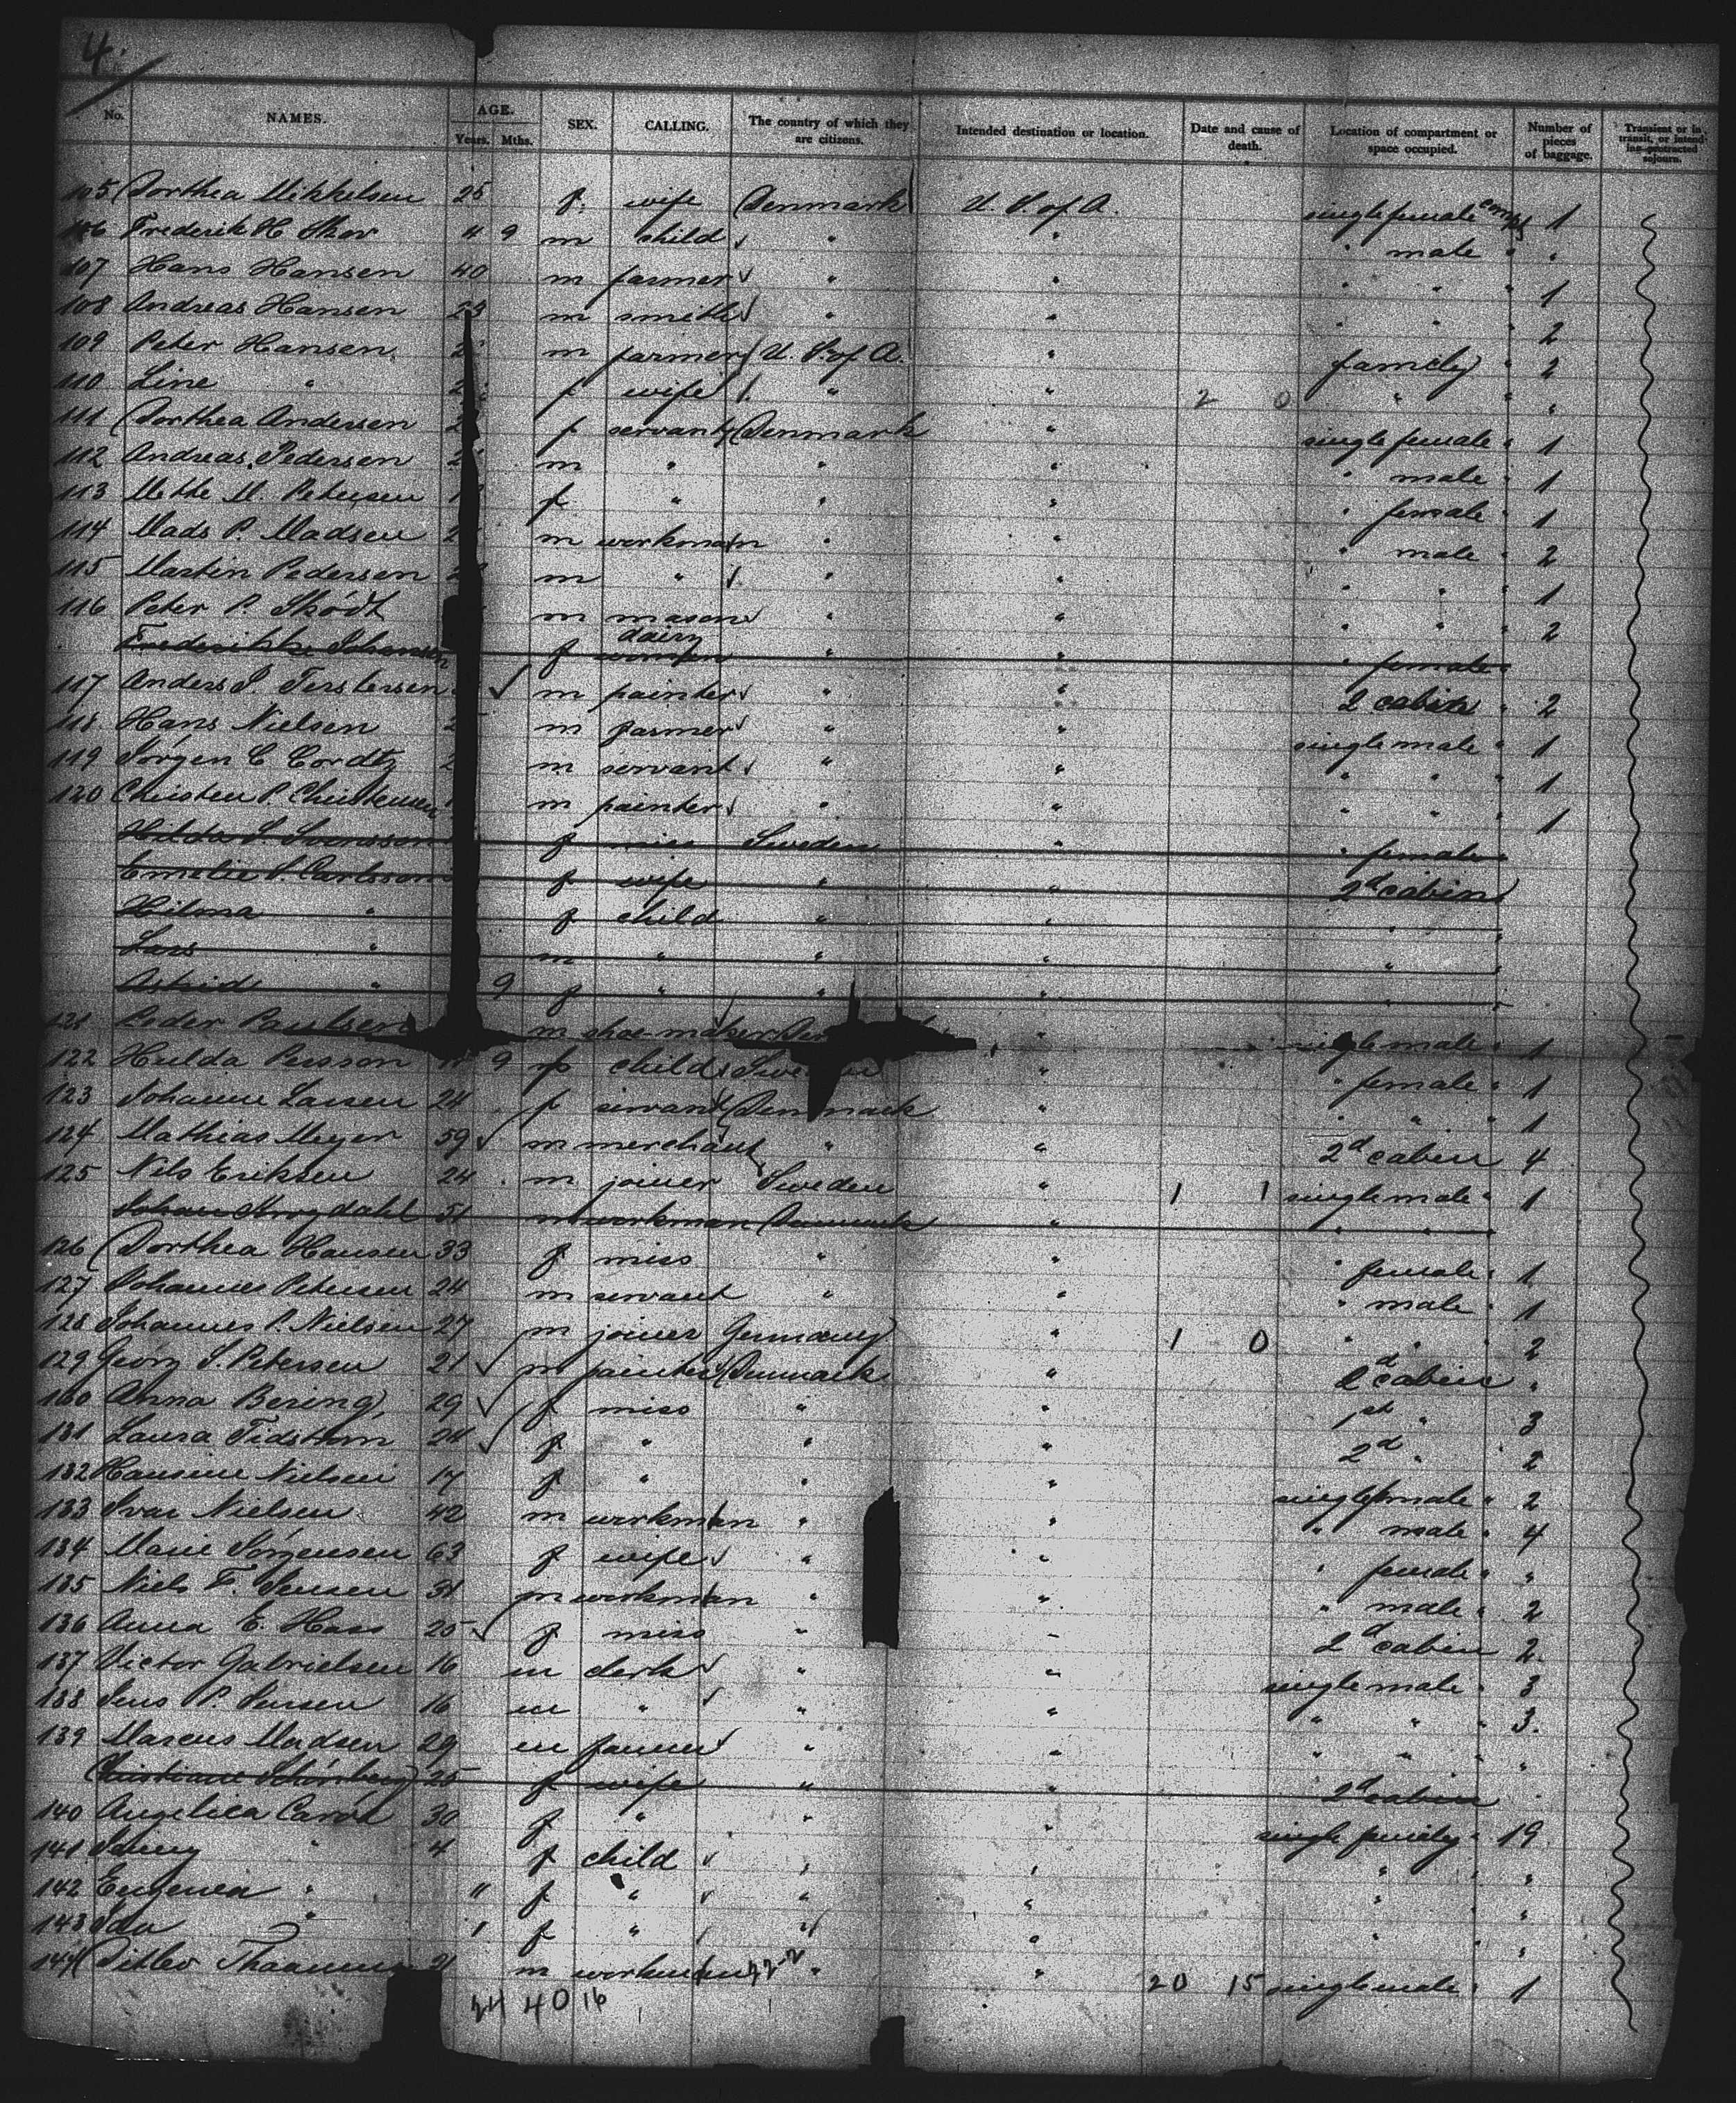 4.
No. NAMES. AGE. Years. Mths. SEX. CALLING. The country of which they are citizens. Intended destination or location. Date and cause of death. Location of compartment or space occupied. Number of pieces of baggage. Transient or in transit, or intending protracted sojourn.
105 Dorthea Mikkelsen 25 f. wife Denmark U. S. of A. single female comp 1
106 Frederik H. Skov " 9 m child " " " male " "
107 Hans Hansen 40 m farmer " " " " " 1
108 Andreas Hansen 23 m smith " " " " " 2
109 Peter Hansen m farmer U. S. of A. " family " 2
110 Line " f wife " " 2 0 " " "
111 Dorthea Andersen f servant Denmark " single female " 1
112 Andreas Pedersen m " " " " male " 1
113 Mette M. Petersen f " " " " female " 1
114 Mads P. Madsen m workman " " " male " 2
115 Martin Pedersen m " " " " " " 1
116 Peter P. Sködt m mason " " " " " 2
Frederikke Johansen f dairy woman " " " female "
117 Anders J. Terslersen m painter " " 2 cabin " 2
118 Hans Nielsen m farmer " " single male " 1
119 Jörgen C Cordtz m servant " " " " " 1
120 Christen P. Christensen m painter " " " " " 1
Hilda S. Svensson f miss Sweden " " female "
Emelie S. Carlsson f wife " " 2d cabin
Hilma " f child " " " "
Lars " m " " " " "
Astrid " 9 f " " " " "
121 Peder Poulsen m shoe-maker " single male " 1
122 Hulda Persson " 9 f child Sweden " " female " 1
123 Johanne Larsen 24 f servant Denmark " " " " 1
124 Mathias Meyer 59 m merchant " " 2d cabin 4
125 Nils Eriksen 24 m joiner Sweden " 1 1 single male " 1
Johan 51 m workman Denmark " " " "
126 Dorthea Hansen 33 f miss " " " female " 1
127 Johannes Petersen 24 m servant " " " male " 1
128 Johannes P. Nielsen 27 m joiner Germany " 1 0 " " " 2
129 Georg S. Petersen 21 m painter Denmark " 2d cabin "
160 Anna Bering 29 f miss " " 1st " 3
131 Laura Tidstrom 24 f " " " 2d " 2
132 Hansine Nielsen 17 f " " " single female " 2
133 Ivar Nielsen 42 m workman " " " male " 4
134 Marie Sörgensen 63 f wife " " " female " "
135 Niels F. Jensen 31 m workman " " " male " 2
136 Anna E. Hass 25 f miss " " 2d cabin 2.
137 Victor Gabrielsen 16 m clerk " " single male " 3
138 Jens P. Jensen 16 m " " " " " " 3.
139 Marcus Madsen 29 m farmer " " " " " "
25 f wife " " 2d cabin
140 Angelica Caröe 30 f " " " single family " 19
141 Jenny " 4 f child " " " " "
142 Eugenea " " f " " " " " "
143 Ida " 1 f " " " " "
144 Ditlev 21 m workman " " 20 15 single male " 1
24 40 16